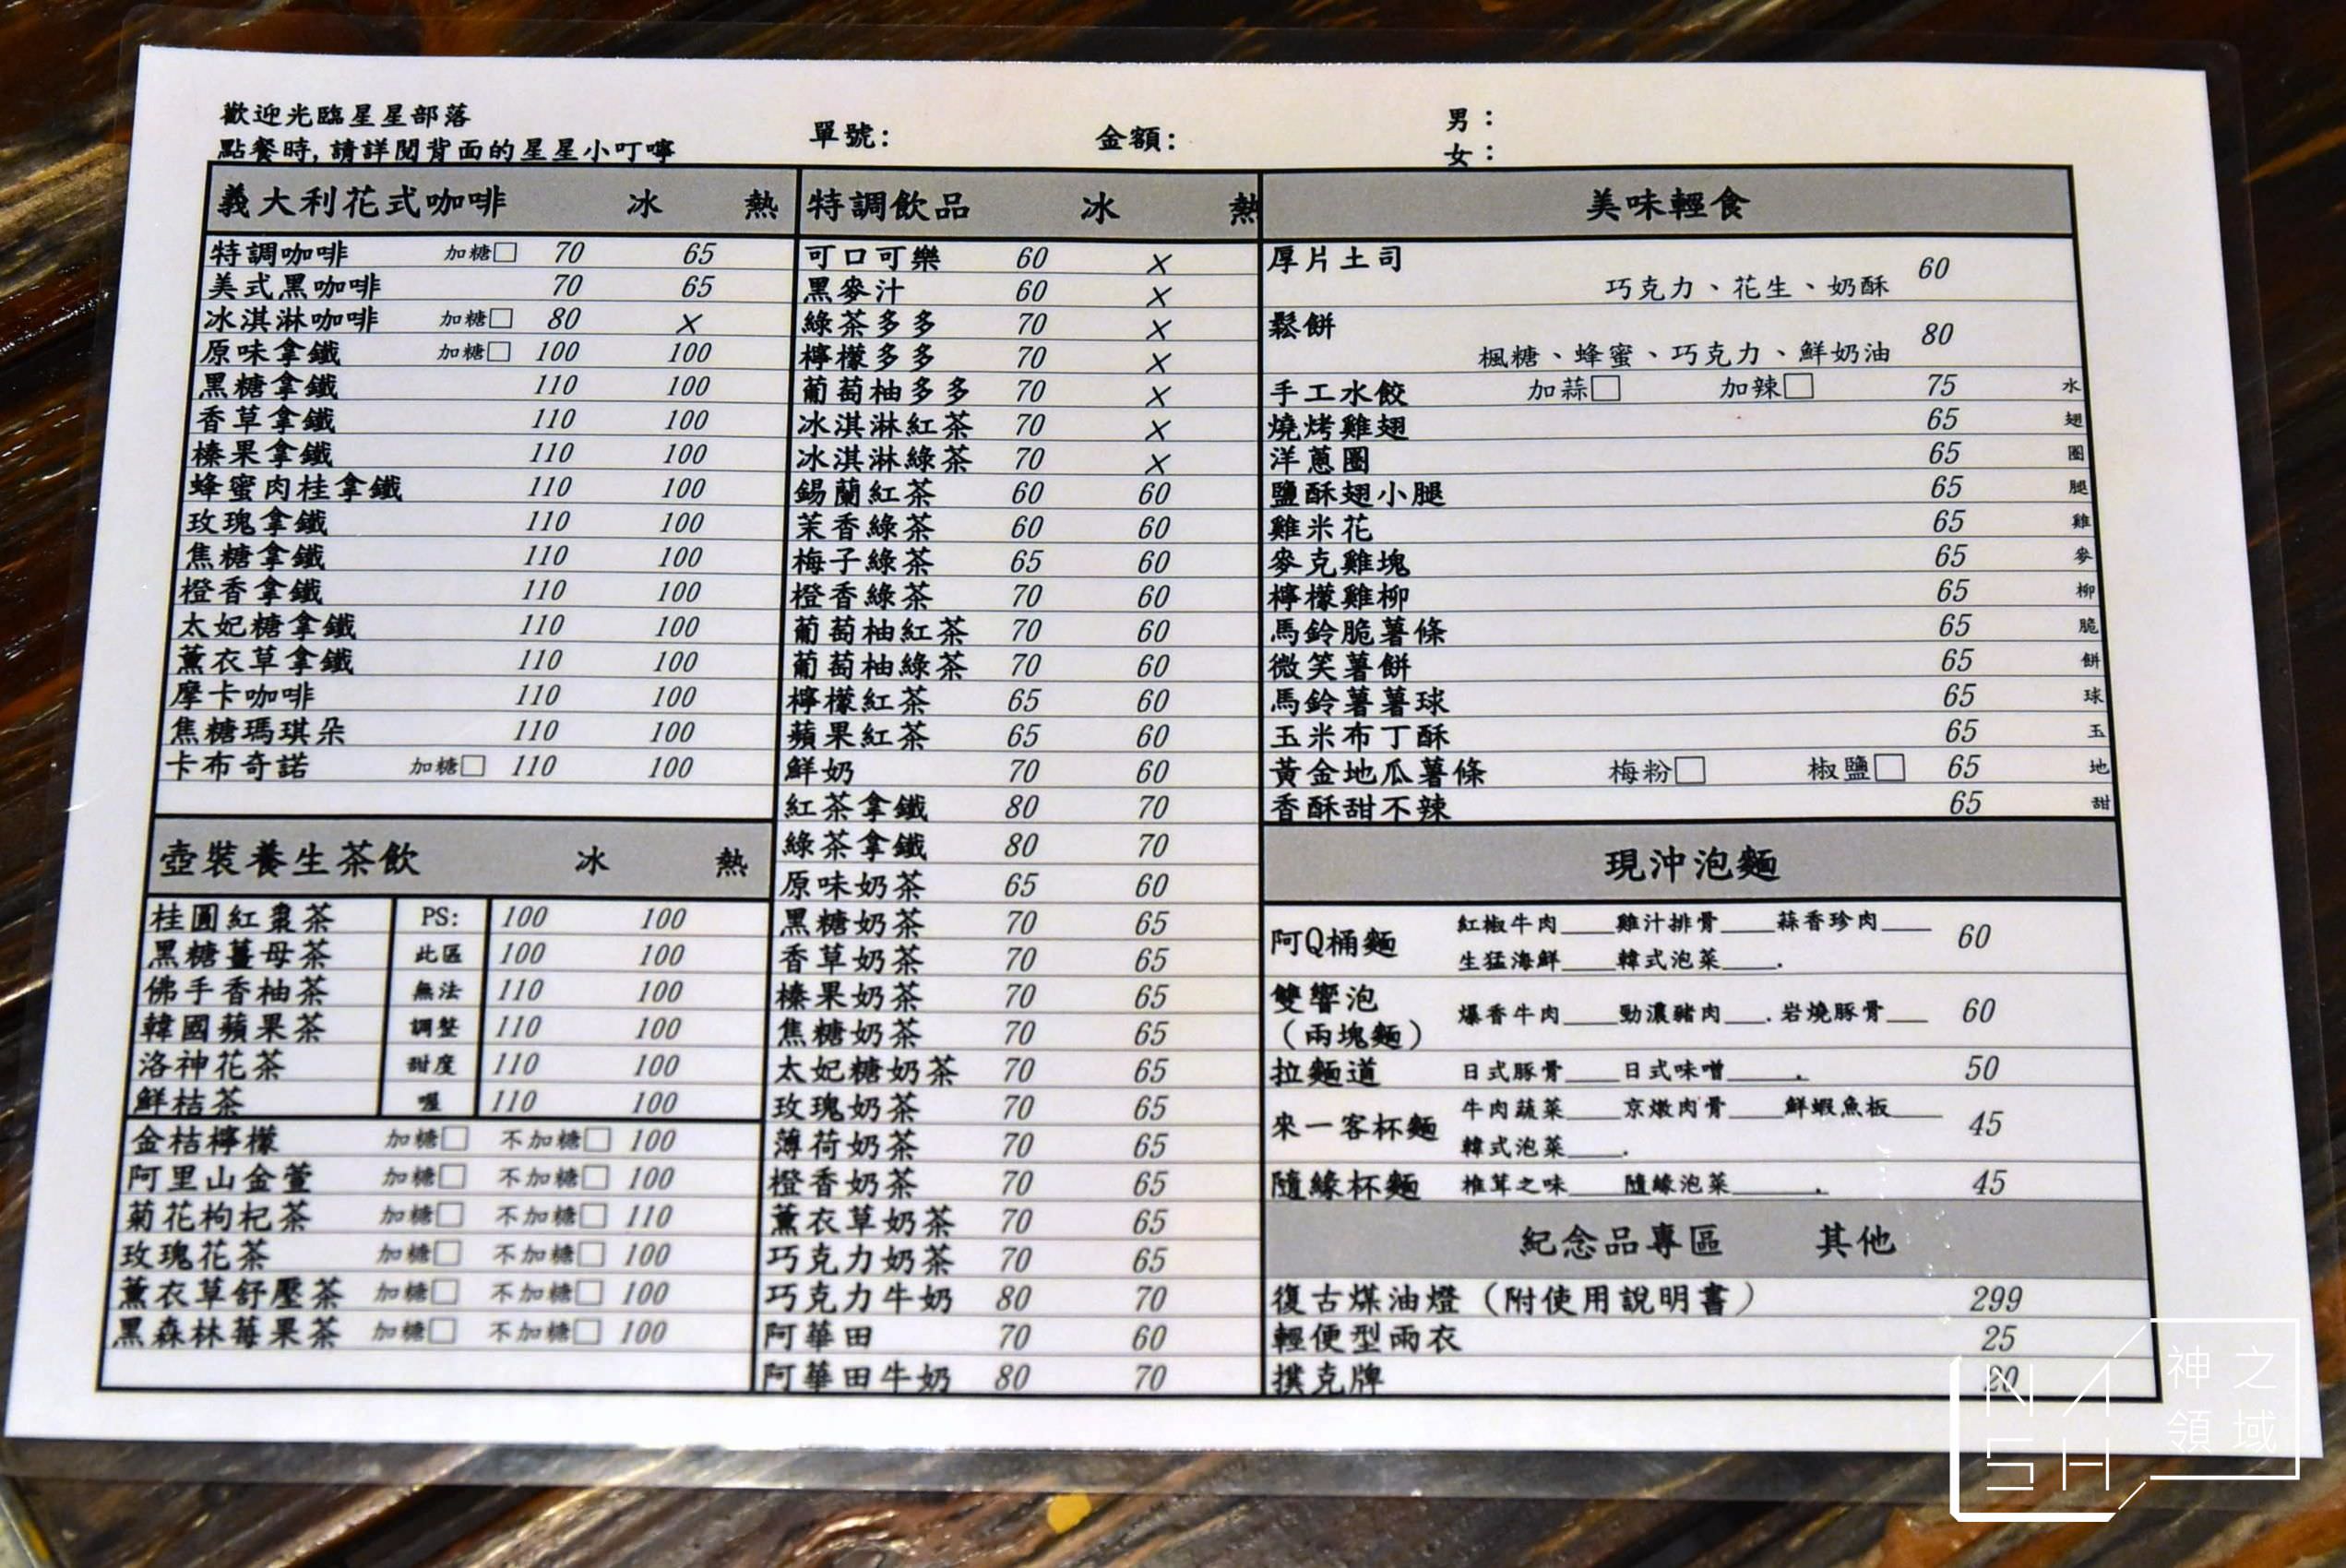 歡迎光臨星星部落
點餐時,請詳閱背面的星星小叮嚀
單號:
金額:
男:
女:
義大利花式咖啡 冰 熱
特調咖啡 加糖□ 70 65
美式黑咖啡 70 65
冰淇淋咖啡 加糖□ 80 ×
原味拿鐵 加糖□ 100 100
黑糖拿鐵 110 100
香草拿鐵 110 100
榛果拿鐵 110 100
蜂蜜肉桂拿鐵 110 100
玫瑰拿鐵 110 100
焦糖拿鐵 110 100
橙香拿鐵 110 100
太妃糖拿鐵 110 100
薰衣草拿鐵 110 100
摩卡咖啡 110 100
焦糖瑪琪朵 110 100
卡布奇諾 加糖□ 110 100
壺裝養生茶飲 冰 熱
桂圓紅棗茶 PS: 100 100
黑糖薑母茶 此區 100 100
佛手香柚茶 無法 110 100
韓國蘋果茶 調整 110 100
洛神花茶 甜度 110 100
鮮桔茶 喔 110 100
金桔檸檬 加糖□ 不加糖□ 100
阿里山金萱 加糖□ 不加糖□ 100
菊花枸杞茶 加糖□ 不加糖□ 110
玫瑰花茶 加糖□ 不加糖□ 100
薰衣草舒壓茶 加糖□ 不加糖□ 100
黑森林莓果茶 加糖□ 不加糖□ 100
特調飲品 冰 熱
可口可樂 60 ×
黑麥汁 60 ×
綠茶多多 70 ×
檸檬多多 70 ×
葡萄柚多多 70 ×
冰淇淋紅茶 70 ×
冰淇淋綠茶 70 ×
錫蘭紅茶 60 60
茉香綠茶 60 60
梅子綠茶 65 60
橙香綠茶 70 60
葡萄柚紅茶 70 60
葡萄柚綠茶 70 60
檸檬紅茶 65 60
蘋果紅茶 65 60
鮮奶 70 60
紅茶拿鐵 80 70
綠茶拿鐵 80 70
原味奶茶 65 60
黑糖奶茶 70 65
香草奶茶 70 65
榛果奶茶 70 65
焦糖奶茶 70 65
太妃糖奶茶 70 65
玫瑰奶茶 70 65
薄荷奶茶 70 65
橙香奶茶 70 65
薰衣草奶茶 70 65
巧克力奶茶 70 65
巧克力牛奶 80 70
阿華田 70 60
阿華田牛奶 80 70
美味輕食
厚片土司 60
巧克力、花生、奶酥
鬆餅 80
楓糖、蜂蜜、巧克力、鮮奶油
手工水餃 加蒜□ 加辣□ 75 水
燒烤雞翅 65 翅
洋蔥圈 65 圈
鹽酥翅小腿 65 腿
雞米花 65 雞
麥克雞塊 65 麥
檸檬雞柳 65 柳
馬鈴脆薯條 65 脆
微笑薯餅 65 餅
馬鈴薯薯球 65 球
玉米布丁酥 65 玉
黃金地瓜薯條 梅粉□ 椒鹽□ 65 地
香酥甜不辣 65 甜
現沖泡麵
阿Q桶麵 紅椒牛肉____雞汁排骨____蒜香珍肉____ 60
生猛海鮮____韓式泡菜____.
雙響泡 爆香牛肉____勁濃豬肉____.岩燒豚骨____ 60
(兩塊麵)
拉麵道 日式豚骨____日式味噌____. 50
來一客杯麵 牛肉蔬菜____京燉肉骨____鮮蝦魚板____ 45
韓式泡菜____.
隨緣杯麵 椎茸之味____隨緣泡菜____. 45
紀念品專區 其他
復古煤油燈(附使用說明書) 299
輕便型雨衣 25
撲克牌 20
NASH
神之
領域